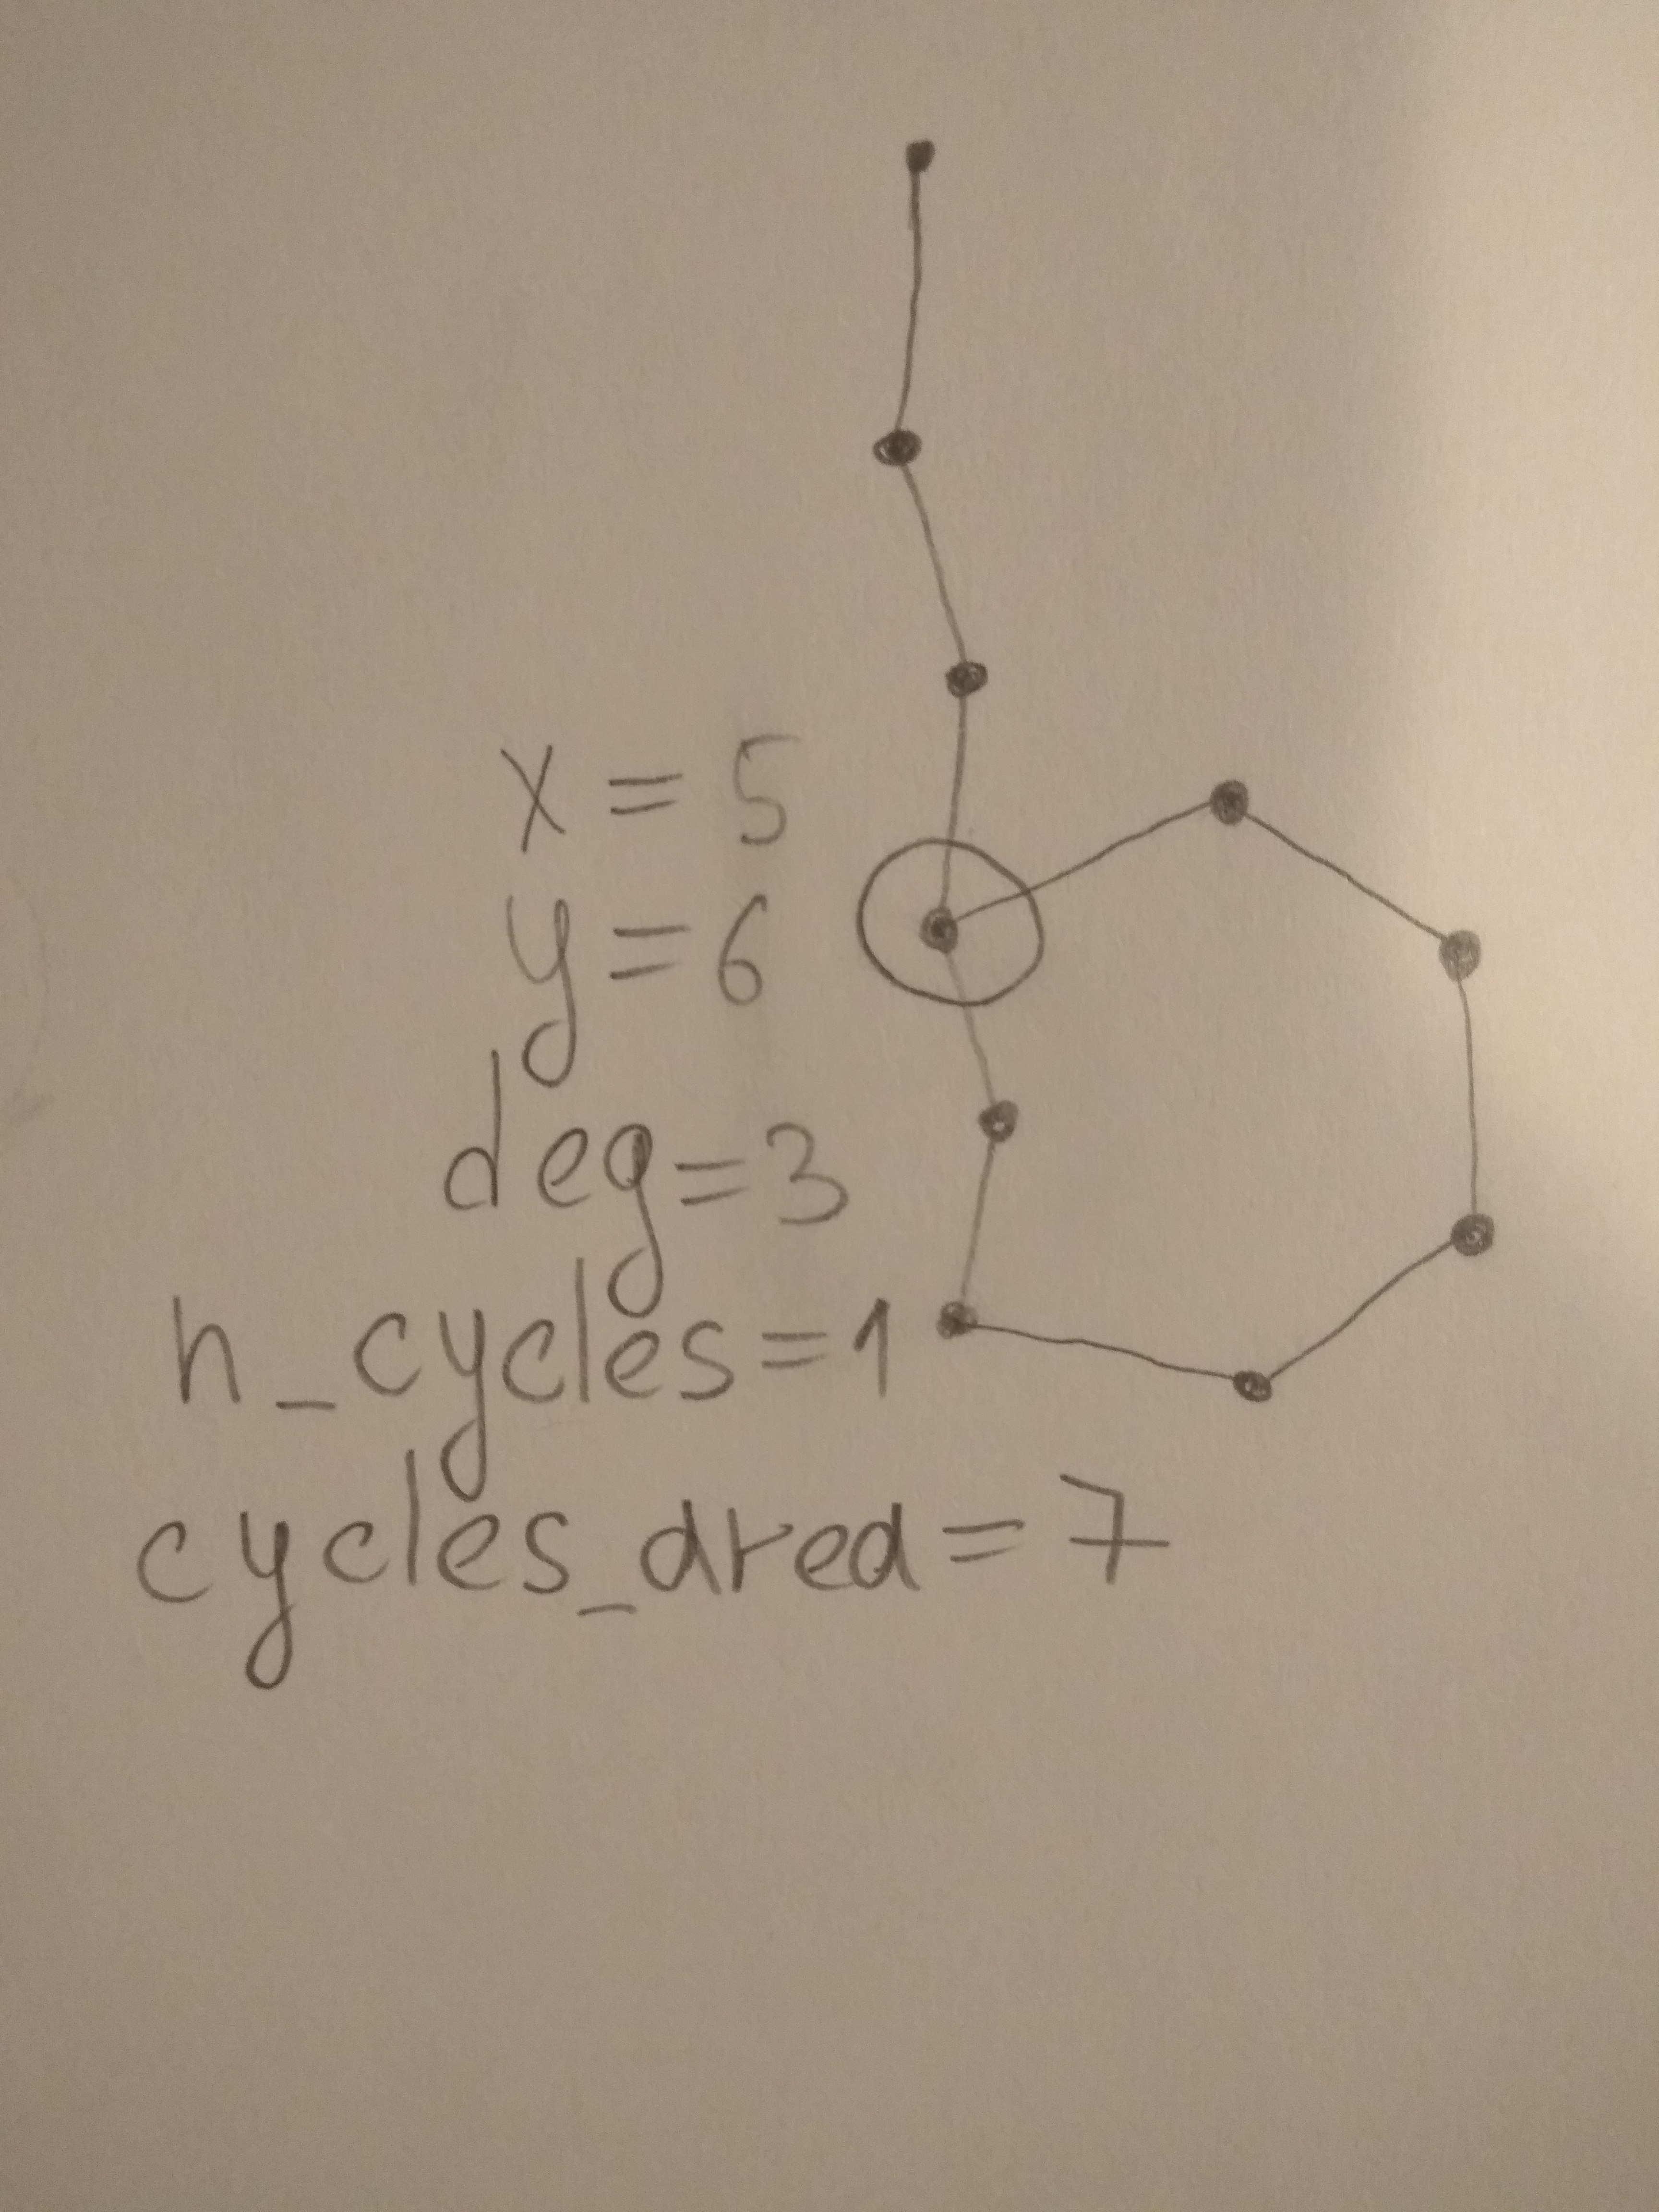 x = 5
y = 6
deg = 3
n_cycles = 1
cycles_area = 7